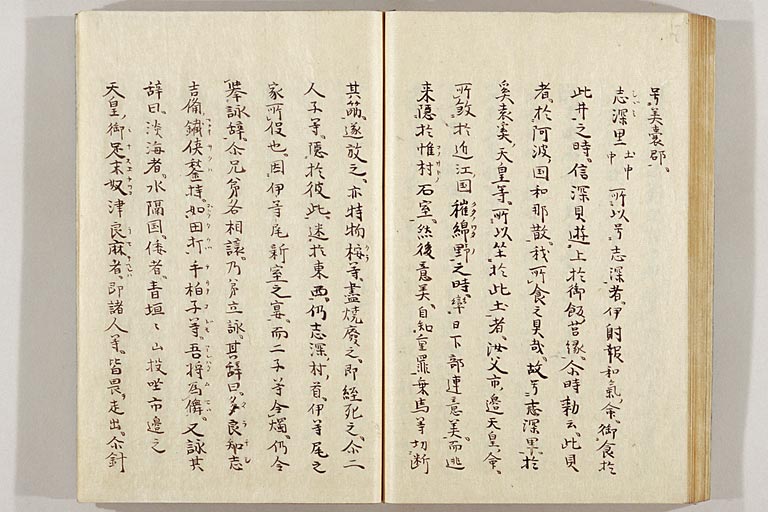 号美嚢郡、
志深里 土中中 所以号志深者、伊射報和氣命、御食於
此井之時、信深貝遊上於御飯筥縁、尒時勅云、此貝
者、於阿波国和那散、我所食之貝哉、故号志深里、於
奚袁奚、天皇等、所以坐於此土者、汝父市邊天皇命、
所殺於近江国摧綿野之時、率日下部連意美、而逃
来隠於惟村石室、然後意美、自知重罪、乗馬等切断
其筋、遂放之、亦持物桉等盡焼廃之、即経死之、尒二
人子等、隠於彼此、迷於東西、仍志深村首、伊等尾之
家所役也、因伊等尾新室之宴、而二子等令燭、仍令
挙詠辞、尒兄弟各相譲、乃弟立詠、其辞曰、多良知志
吉備鏽侠鍫持、如田打、手柏子等、吾将為儛、又詠其
辞曰、淡海者、水隔国、倭者、青垣、山投坐市邊之
天皇、御足末奴津良麻者、即諸人等、皆畏、走出、尒針